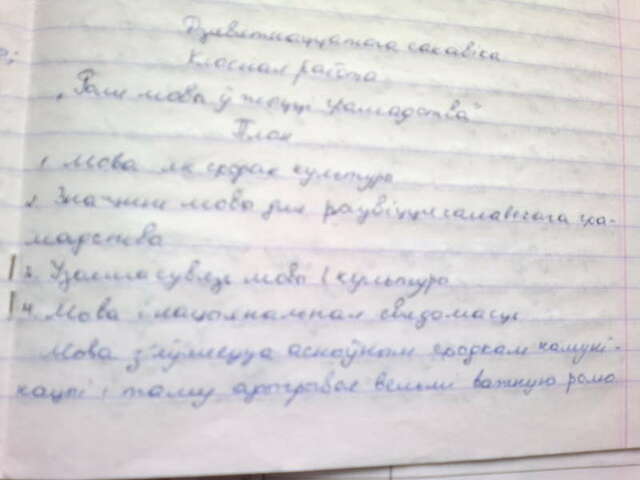 Дзевятнаццатага сакавіка
Класная работа
"Роля мовы ў жыцці грамадства"
План
1. Мова як сродак культуры
2. Значэнне мовы для развіцця чалавечага гра-
мадства
3. Узаемасувязь мовы і культуры
4. Мова і нацыянальная свядомасць
Мова з'яўляецца асноўным сродкам камуні-
кацыі і таму адыгрывае вельмі важную ролю